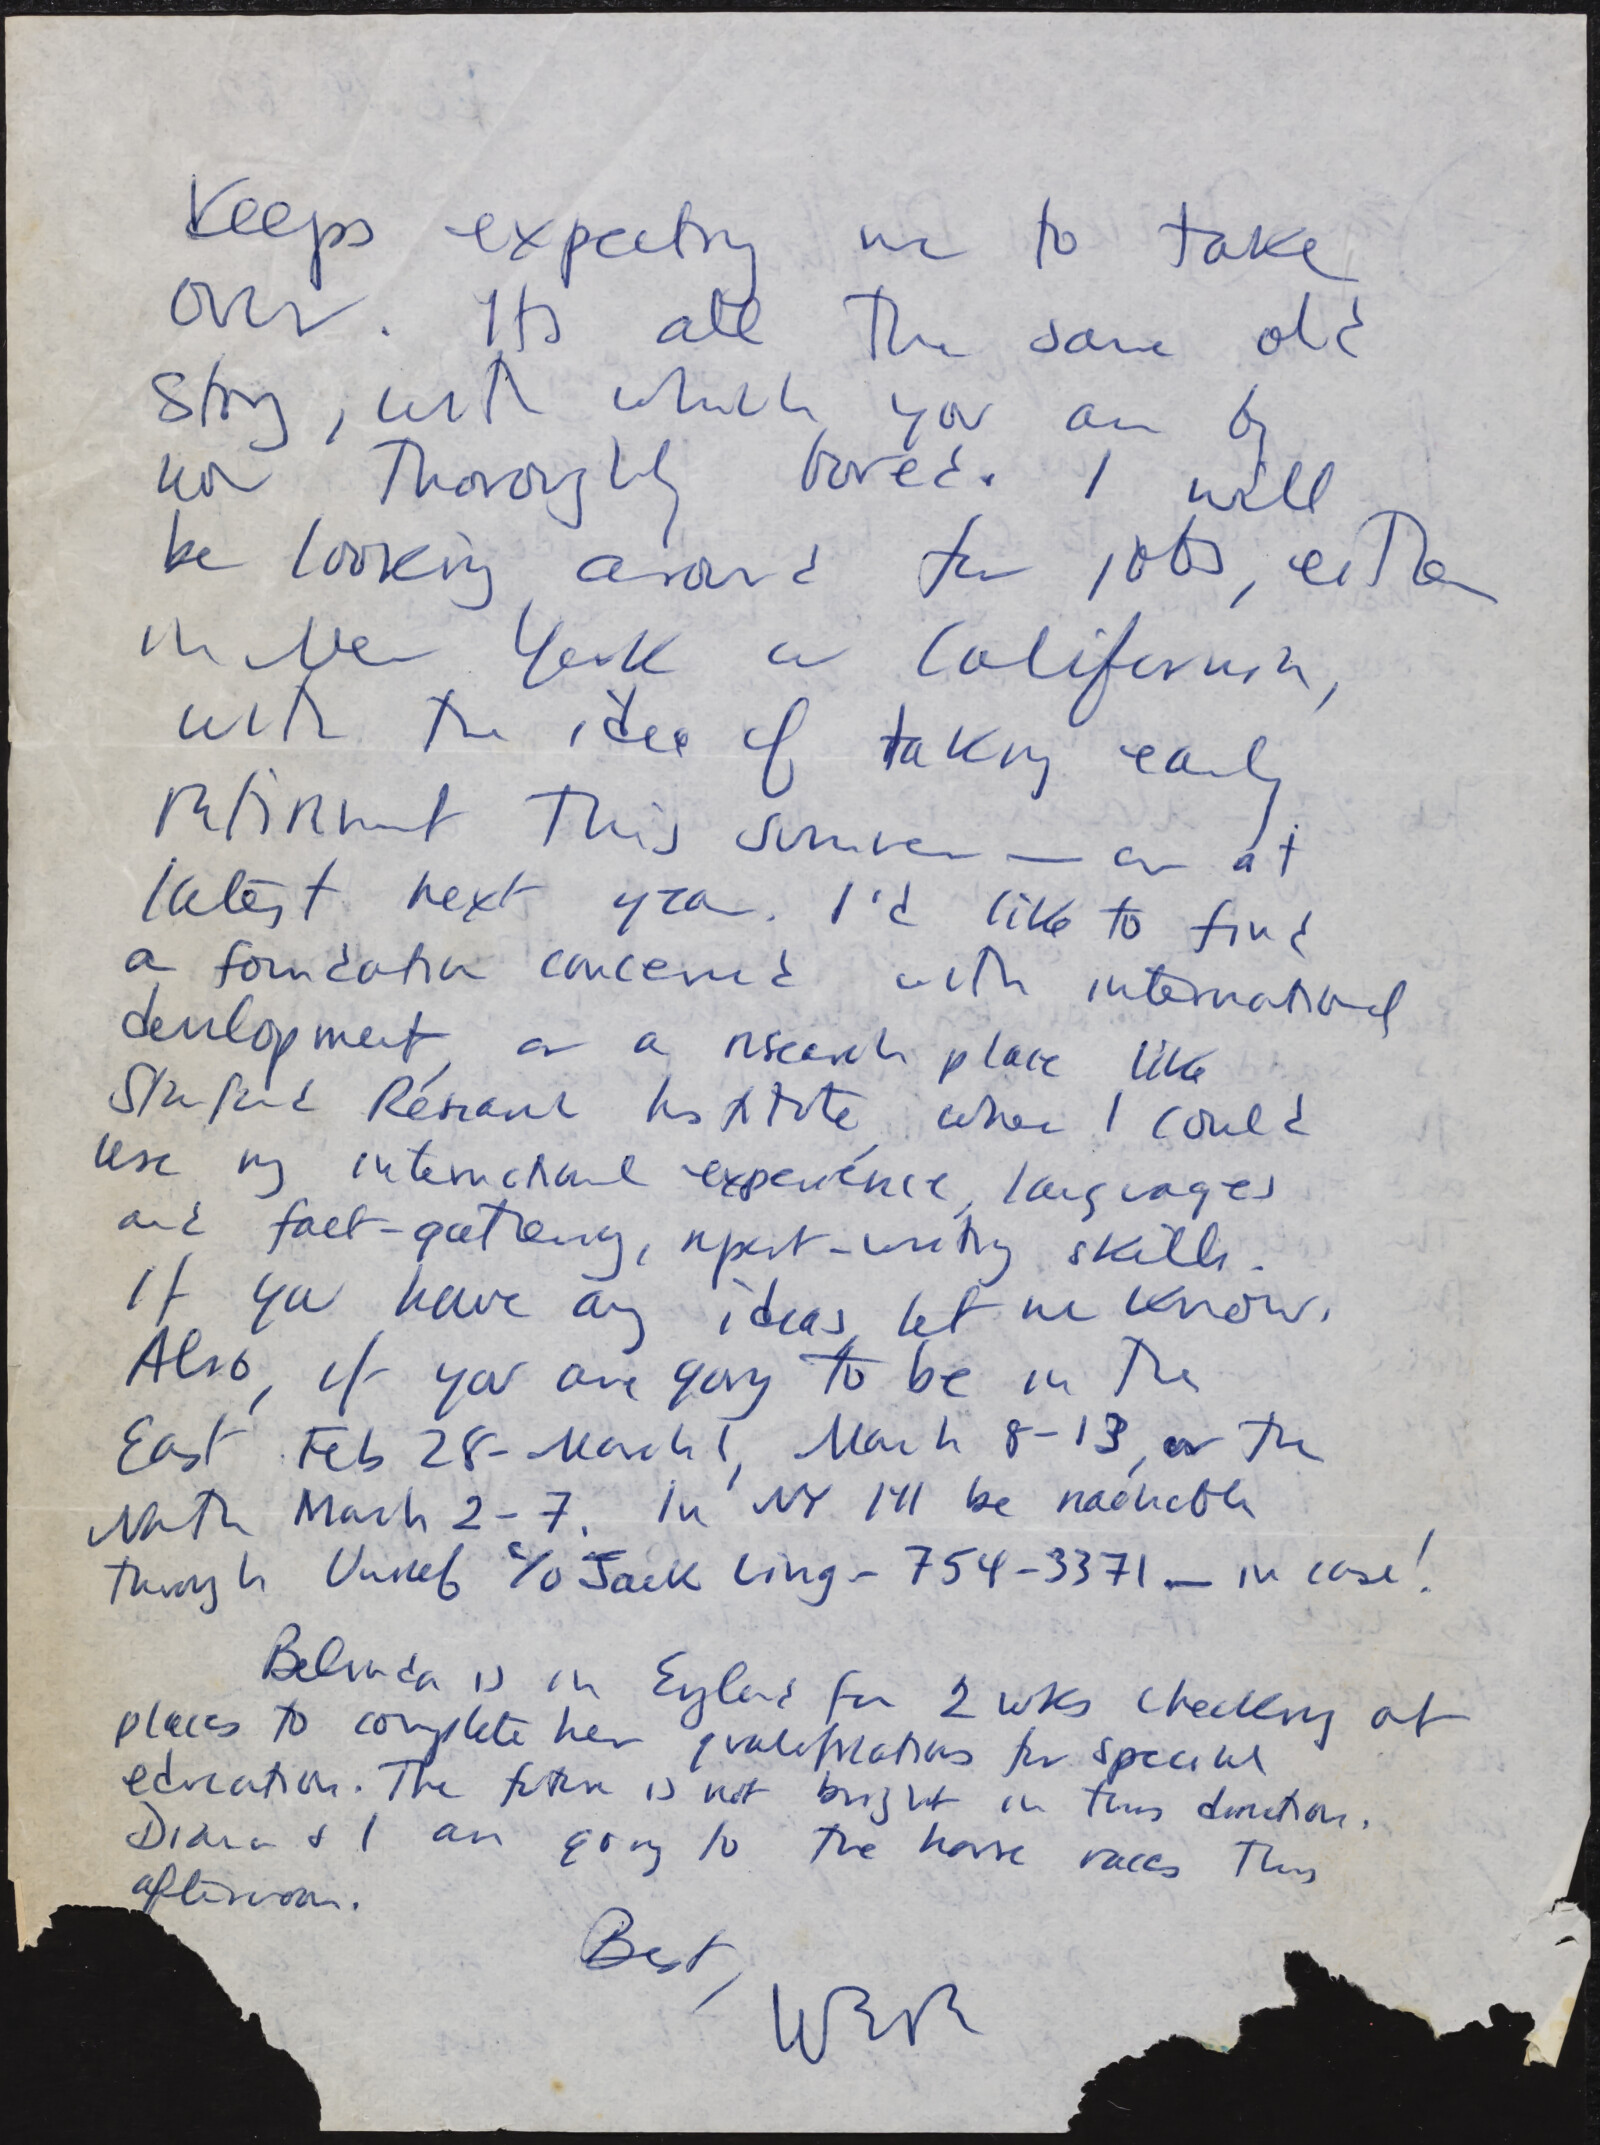 Keeps expecting me to take
over. Its all the same old
story, with which you are by
now thoroughly bored. I will
be looking around for jobs, either
in New York or California,
with the idea of taking early
retirement this summer — or at
latest next year. I'd like to find
a foundation concerned with international
development, or a research place like
Stanford Research Institute, where I could
use my international experience, languages
and fact-gathering, report-writing skills.
If you have any ideas, let me know.
Also, if you are going to be in the
East Feb 28 - March 1, March 8-13, or the
North March 2-7. In NY I'll be reachable
through Unicef c/o Jack Ling - 754-3371 — in case!
Belinda is in England for 2 wks checking out
places to complete her qualifications for special
education. The future is not bright in this direction.
Diana & I are going to the horse races this
afternoon.
Best,